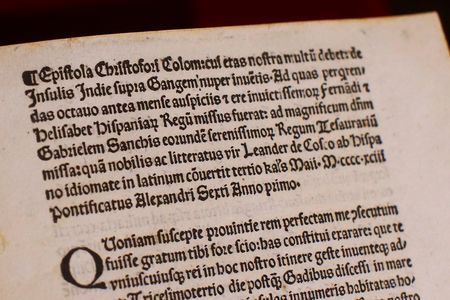 ¶Epistola Christofori Colom:cui etas nostra multũ debet:de
Insulis Indie supra Gangem nuper inuẽtis. Ad quas perqren-
das octauo antea mense auspiciis ⁊ ere inuictissimoꝝ Fernãdi ⁊
Helisabet Hispaniaꝝ Regũ missus fuerat: ad magnificum dñm
Gabrielem Sanchis eorundẽ serenissimoꝝ Regum Tesaurariũ
missa: quã nobilis ac litteratus vir Leander de Cosco ab Hispa
no idiomate in latinum cõuertit tertio kal's Maii. M.cccc.xciii
Pontificatus Alexandri Sexti Anno primo.
QUoniam suscepte prouintie rem perfectam me ↄsecutum
fuisse gratum tibi fore scio: has constitui exarare: que te
vniuscuiusqꝫ rei in hoc nostro itinere geste inuenteqꝫ ad-
Tricesimotertio die postqꝫ Gadibus discessi in mare
innumeris habitatas ho-